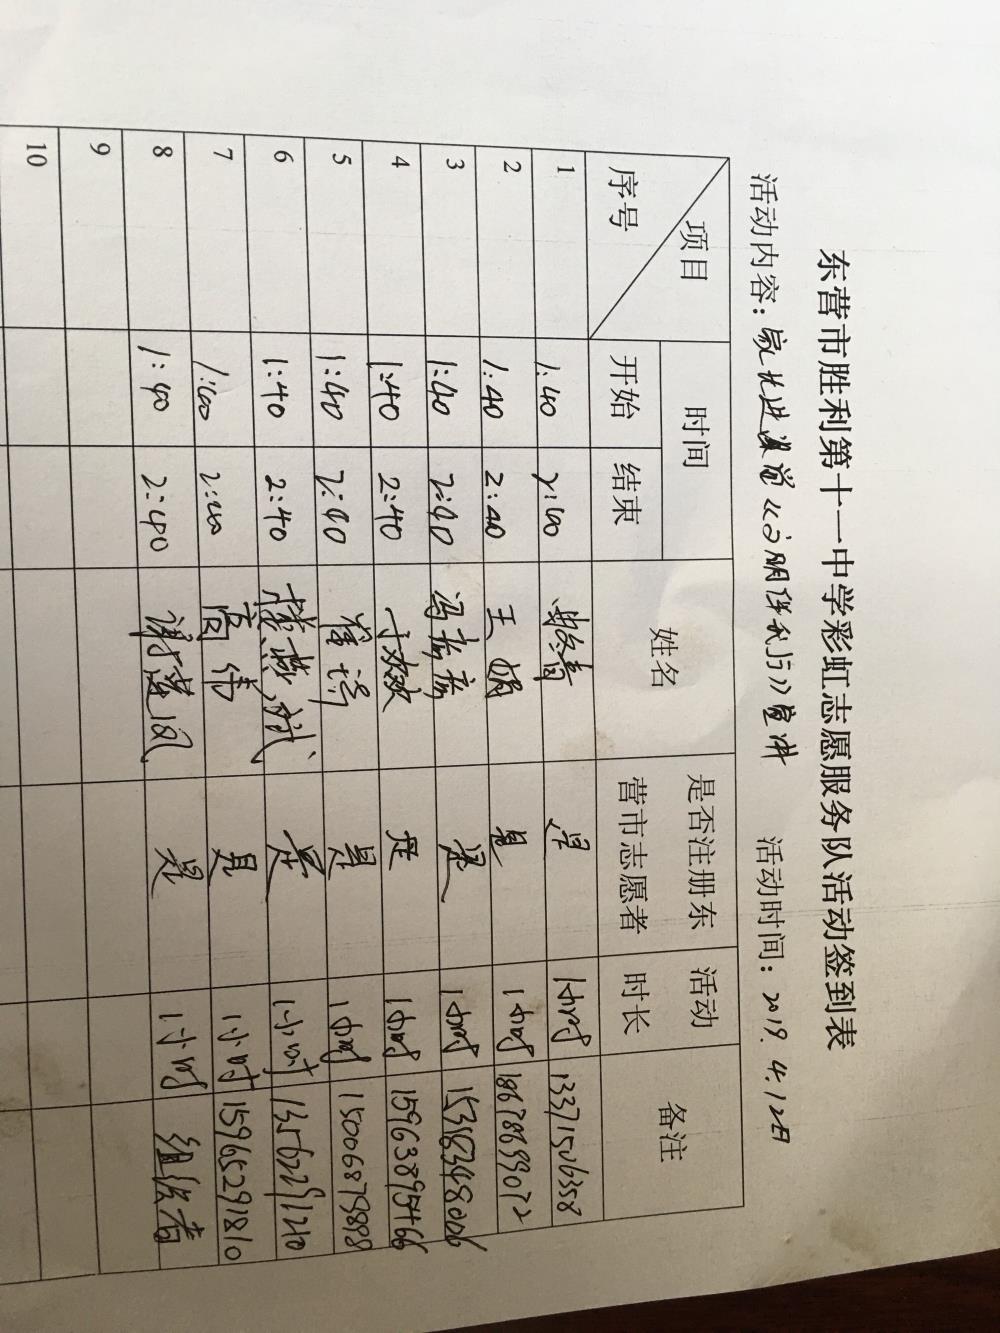 东营市胜利第十一中学彩虹志愿服务队活动签到表
活动内容：家长进课堂《文明伴我行》宣讲 活动时间：2019.4.12日
项目 时间 姓名 是否注册东营市志愿者 活动时长 备注
序号 开始 结束
1 1:40 2:40 是 1小时 13371506358
2 1:40 2:40 王娟 是 1小时 18678699072
3 1:40 2:40 冯 是 1小时 15318348006
4 1:40 2:40 于姣姣 是 1小时 15963895466
5 1:40 2:40 是 1小时 15006879898
6 1:40 2:40 是 1小时 13562291210
7 1:40 2:40 高伟 是 1小时 15965291810
8 1:40 2:40 谢莲凤 是 1小时 组织者
9
10